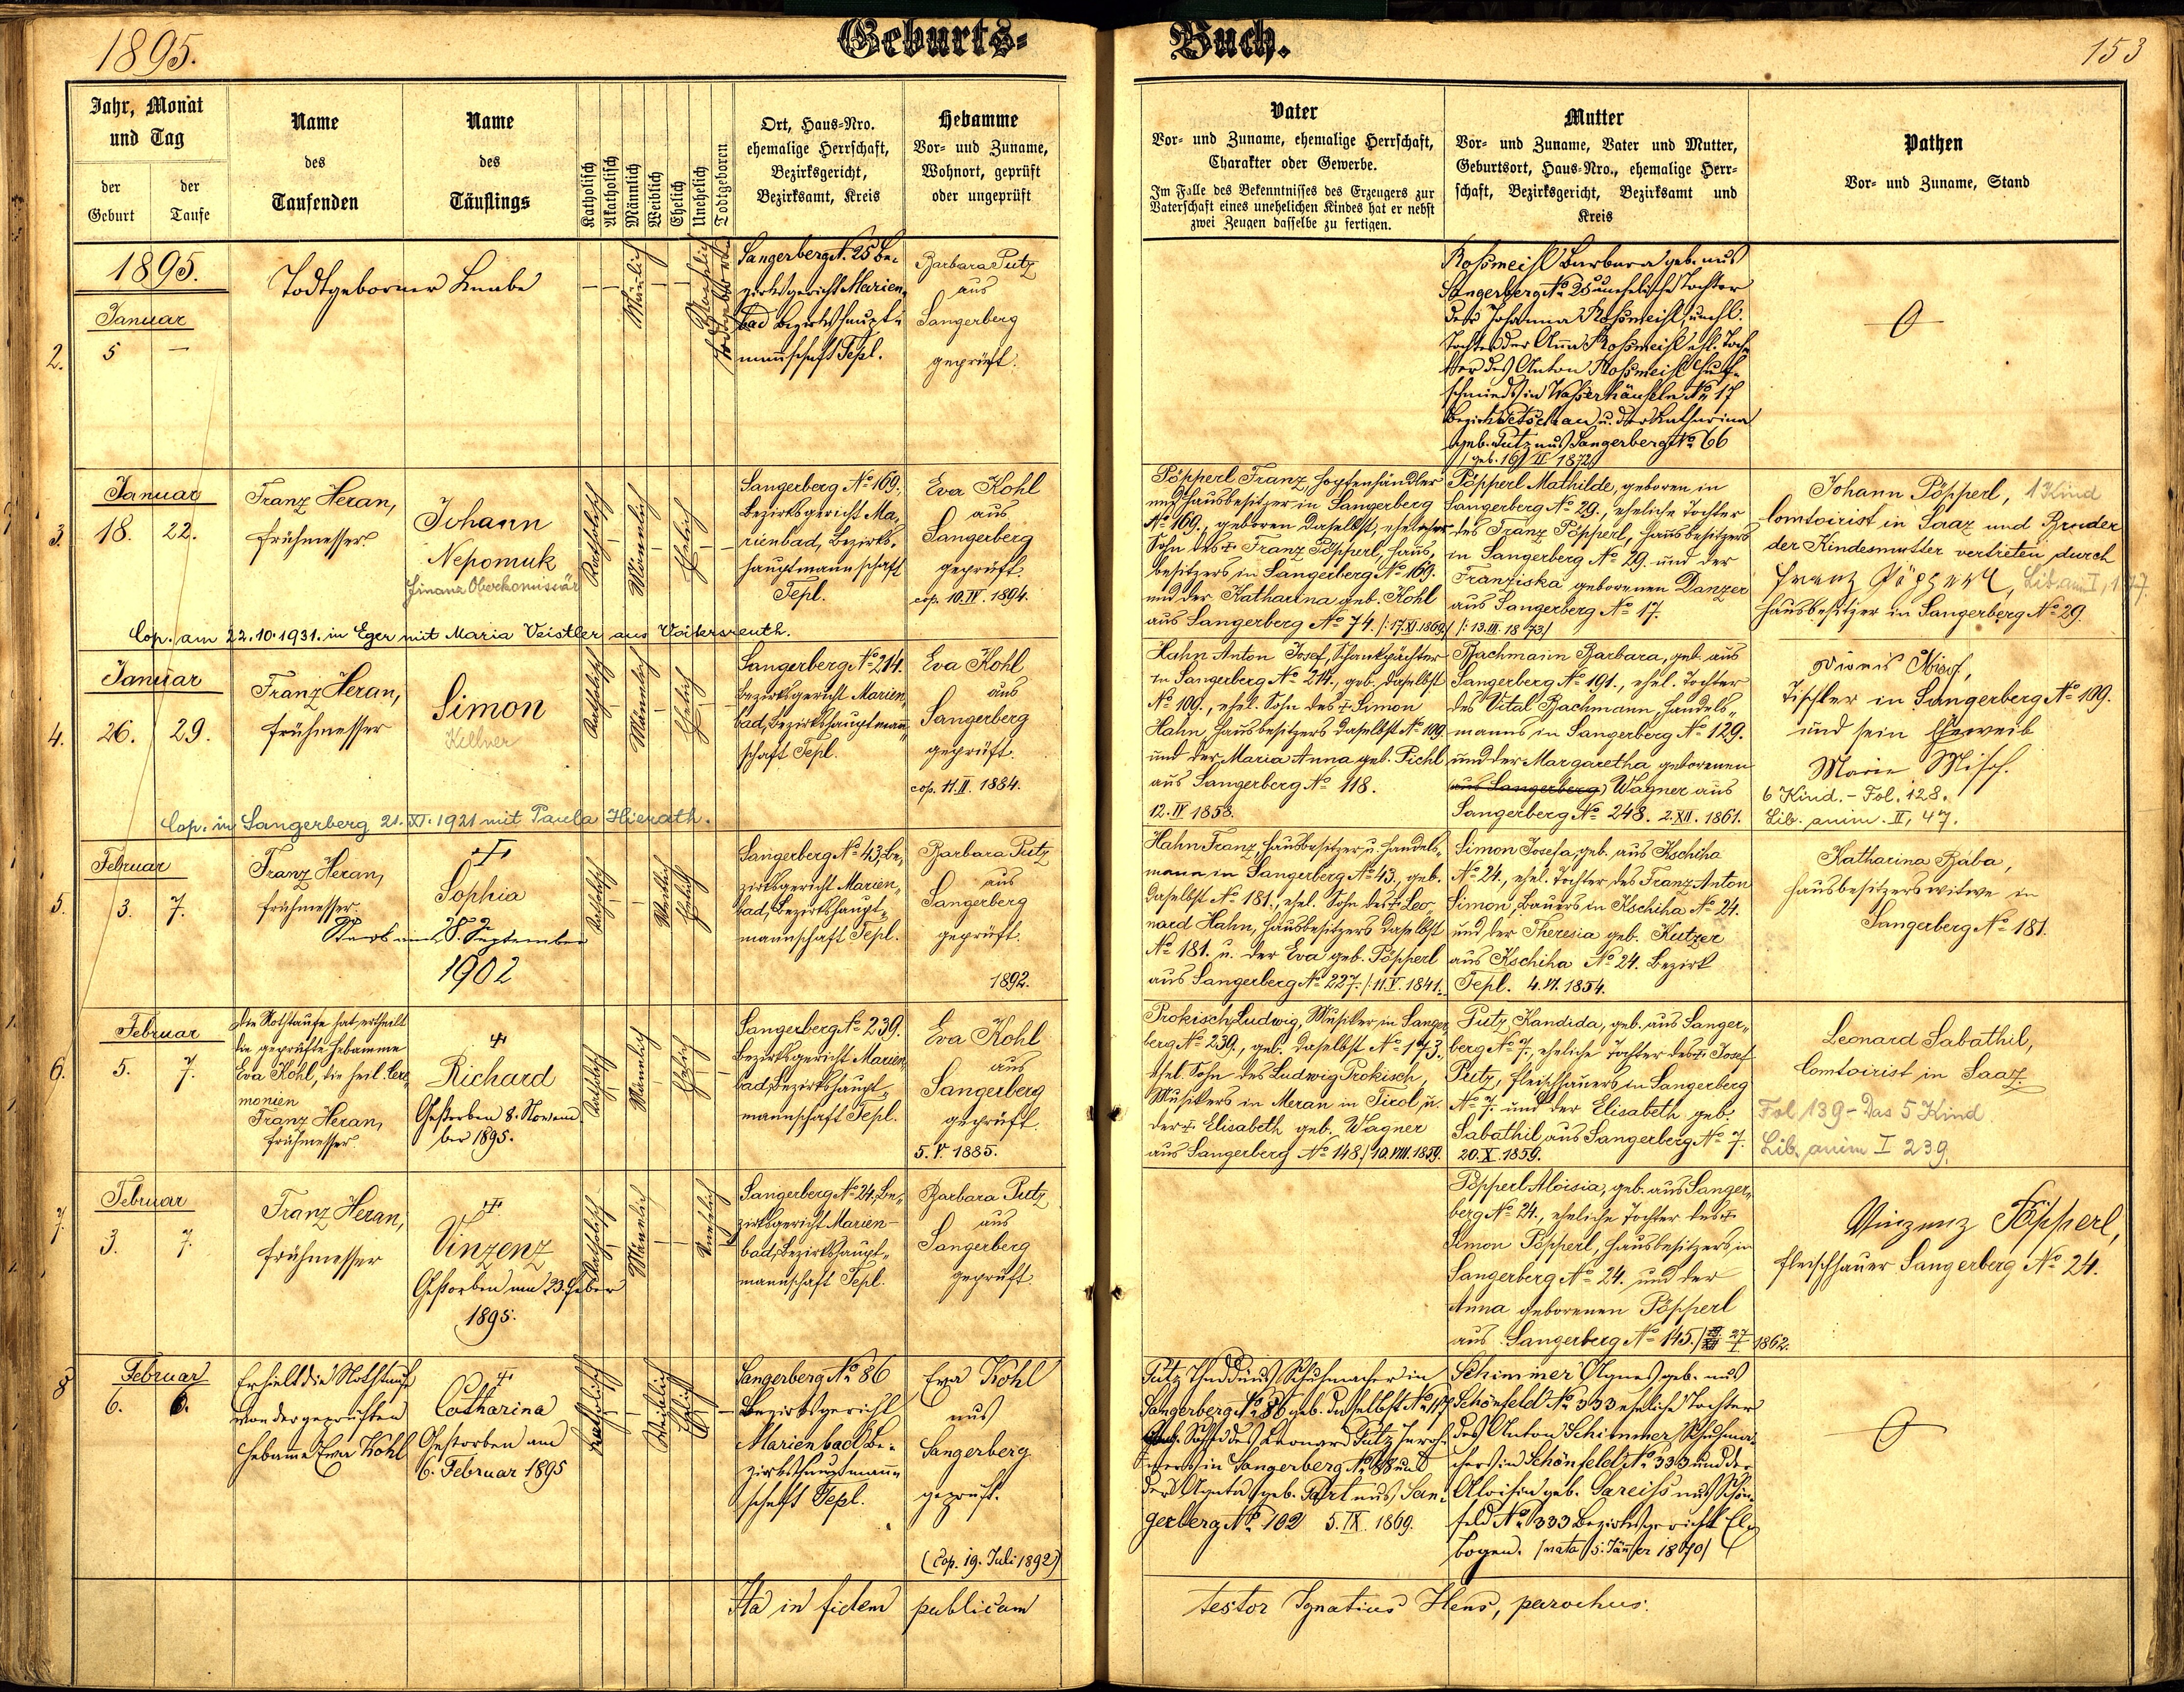 1895.
Geburts-Buch.
153
Jahr, Monat
und Tag
der
Geburt
der
Taufe
Name
des
Taufenden
Name
des
Täuflings
Katholisch
Akatholisch
Männlich
Weiblich
Ehelich
Unehelich
Todtgeboren
Ort, Haus-Nro.
ehemalige Herrschaft,
Bezirksgericht,
Bezirksamt, Kreis
Hebamme
Vor- und Zuname,
Wohnort, geprüft
oder ungeprüft
Vater
Vor- und Zuname, ehemalige Herrschaft,
Charakter oder Gewerbe.
Im Falle des Bekenntnisses des Erzeugers zur
Vaterschaft eines unehelichen Kindes hat er nebst
zwei Zeugen dasselbe zu fertigen.
Mutter
Vor- und Zuname, Vater und Mutter,
Geburtsort, Haus-Nro., ehemalige Herr-
schaft, Bezirksgericht, Bezirksamt und
Kreis
Pathen
Vor- und Zuname, Stand
2.
1895.
Januar
5 —
Todtgeborner Knabe
Männlich
Unehelich
Todtgeboren
Sangerberg N. 25 Be-
zirksgericht Marien-
bad Bezirkshaupt-
mannschaft Tepl.
Barbara Putz
aus
Sangerberg
geprüft.
Roßmeisl Barbara geb. aus
Sangerberg No 25 uneheliche Tochter
der Johanna Roßmeisl unehl.
Tochter der Anna Roßmeisl ehl. Toch-
ter des Anton Roßmeisl Huf-
schmieds in Wasserhäuseln No 17
Bezirk Petschau u. der Katharina
geb. Putz aus Sangerberg No 66
geb. 16/II 1872
3.
Januar
18. 22.
Franz Heran,
Frühmesser
Johann
Nepomuk
Finanz Oberkomissär
Katholisch
Männlich
Ehelich
Sangerberg No 169.,
Bezirksgericht Ma-
rienbad, Bezirks-
hauptmannschaft
Tepl.
Eva Kohl
aus
Sangerberg
geprüft.
cop. 10.IV. 1894.
Pöpperl Franz, Hopfenhändler
und Hausbesitzer in Sangerberg
No 169., geboren daselbst, ehelicher
Sohn des † Franz Pöpperl, Haus-
besitzers in Sangerberg No 169.
und der Katharina geb. Kohl
aus Sangerberg No 74. /: 17.XI.1869./
Pöpperl Mathilde, geboren in
Sangerberg No 29., eheliche Tochter
des Franz Pöpperl, Hausbesitzers
in Sangerberg No 29. und der
Franziska geborenen Danzer
aus Sangerberg No 17.
/: 13.III. 1873/
Johann Pöpperl, 1 Kind
Comtoirist in Saaz und Bruder
der Kindesmutter vertreten durch
Franz Pöpperl, Lib. anim I, 177.
Hausbesitzer in Sangerberg No 29.
Cop. am 22.10.1931. in Eger mit Maria Veistler aus Voitersreuth.
4.
Januar
26. 29.
Franz Heran,
Frühmesser
Simon
Kellner
Katholisch
Männlich
Ehelich
Sangerberg No 214.
Bezirksgericht Marien-
bad, Bezirkshauptmann-
schaft Tepl.
Eva Kohl
aus
Sangerberg
geprüft.
cop. 11.II. 1884.
Hahn Anton Josef, Schankpächter
in Sangerberg No 214., geb. daselbst
No 109., ehel. Sohn des † Simon
Hahn, Hausbesitzers daselbst No 109.
und der Maria Anna geb. Pichl
aus Sangerberg No 118.
12.IV 1858.
Bachmann Barbara, geb. aus
Sangerberg No 191., ehel. Tochter
des Vital Bachmann, Handels-
manns in Sangerberg No 129.
und der Margaretha geborenen
aus Sangerberg, Wagner aus
Sangerberg No 248. 2.XII. 1861.
Tischler in Sangerberg No 109.
und sein Eheweib
Marie
6 Kind. - Fol. 128.
Lib. anim. II, 47.
Cop. in Sangerberg 21.XI.1921 mit Paula Hierath.
5.
Februar
3. 7.
Franz Heran,
Frühmesser
†
Sophia
Starb am 28. September
1902
Katholisch
Weiblich
Ehelich
Sangerberg No 43, Be-
zirksgericht Marien-
bad, Bezirkshaupt-
mannschaft Tepl.
Barbara Putz
aus
Sangerberg
geprüft.
1892.
Hahn Franz, Hausbesitzer u. Handels-
mann in Sangerberg No 43., geb.
daselbst No 181., ehel. Sohn des † Leo-
nard Hahn, Hausbesitzers daselbst
No 181. u. der Eva geb. Pöpperl
aus Sangerberg No 227. /: 11.V. 1841.
Simon Josefa, geb. aus Kschiha
No 24., ehel. Tochter des Franz Anton
Simon, Bauers in Kschiha No 24.
und der Theresia geb. Kutzer
aus Kschiha No 24. Bezirk
Tepl. 4.VI. 1854.
Katharina Baba,
Hausbesitzerswitwe in
Sangerberg No 181.
6.
Februar
5. 7.
Die Nothtaufe hat ertheilt
die geprüfte Hebamme
Eva Kohl, die heil. Cere-
monien
Franz Heran,
Frühmesser
†
Richard
Gestorben 8. Novem
ber 1895.
Katholisch
Männlich
Ehelich
Sangerberg No 239.
Bezirksgericht Marien-
bad, Bezirkshaupt-
mannschaft Tepl.
Eva Kohl
aus
Sangerberg
geprüft.
5.V. 1885.
Prokisch Ludwig, Musiker in Sanger-
berg No 239., geb. daselbst No 173.,
ehel. Sohn des Ludwig Prokisch,
Musikers in Meran in Tirol u.
der † Elisabeth geb. Wagner
aus Sangerberg No 148./ 19.VIII.1859.
Putz Kandida, geb. aus Sanger-
berg No 7., eheliche Tochter des † Josef
Putz, Fleischhauers in Sangerberg
No 7. und der Elisabeth geb.
Sabathil aus Sangerberg No 7.
20.X.1859.
Leonard Sabathil,
Comtoirist in Saaz.
Fol 139 - Das 5 Kind
Lib. anim I 239.
7.
Februar
3. 7.
Franz Heran,
Frühmesser
†
Vinzenz
Gestorben am 23. Feber
1895.
Katholisch
Männlich
Unehelich
Sangerberg No 24, Be-
zirksgericht Marien-
bad, Bezirkshaupt-
mannschaft Tepl.
Barbara Putz
aus
Sangerberg
geprüft.
Pöpperl Aloisia, geb. aus Sanger-
berg No 24., eheliche Tochter des †
Simon Pöpperl, Hausbesitzers in
Sangerberg No 24. und der
Anna geborenen Pöpperl
aus Sangerberg No 145. 27/I 1862.
Vinzenz Pöpperl,
Fleischhauer Sangerberg No 24.
8
Februar
6. 6.
Erhielt die Nothtaufe
von der geprüften
Hebamme Eva Kohl
†
Catharina
Gestorben am
6. Februar 1895
Katholisch
Weiblich
Ehelich
Sangerberg No 86
Bezirksgericht
Marienbad, Be-
zirkshauptmann-
schaft Tepl.
Eva Kohl
aus
Sangerberg
geprüft.
(Cop. 19. Juli 1892)
Putz Thaddäus, Schuhmacher in
Sangerberg No 86 geb. daselbst No 117
Sohn des Leonard Putz
in Sangerberg No 88 und
der Agata geb. aus San-
gerberg No 102 5.IX. 1869.
Schimmer Agnes geb. aus
Schönfeld No 333 eheliche Tochter
des Anton Schimmer, Schuhma-
chers in Schönfeld No 333 und der
Aloisia geb. Gareiss aus Schön-
feld No 333 Bezirksgericht Eln-
bogen. /nata 5. Jänner 1870/
Ita in fidem publicam
testor Ignatius Hens, parochus.